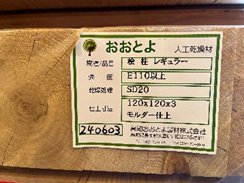 おおとよ 人工乾燥材
樹種/品目 桧 柱 レギュラー
等級 E110以上
乾燥処理 SD20
仕上寸法 120x120x3
モルダー仕上
240603
高知おおとよ製材株式会社